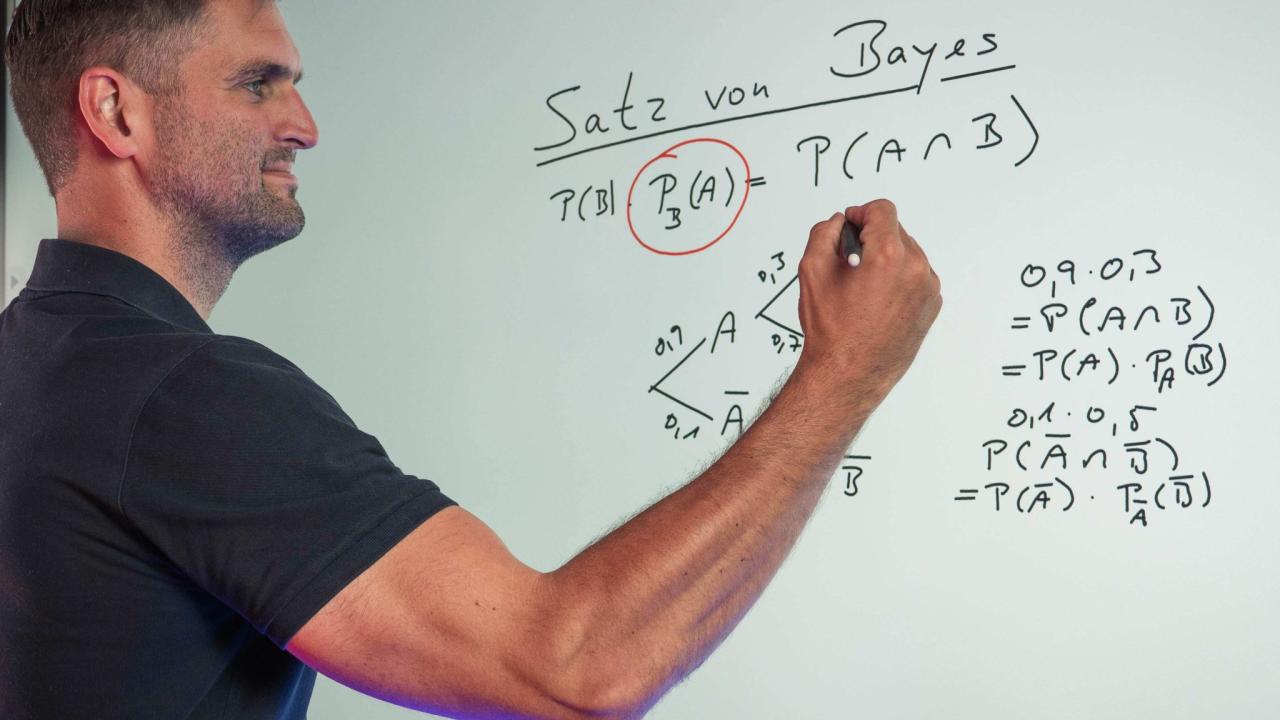 Satz von Bayes
P(B) · P_B(A) = P(A ∩ B)
0,3
0,9 A
0,7
0,1 A̅
B̅
0,9 · 0,3
= P(A ∩ B)
= P(A) · P_A(B)
0,1 · 0,5
P(A̅ ∩ B̅)
= P(A̅) · P_A̅(B̅)